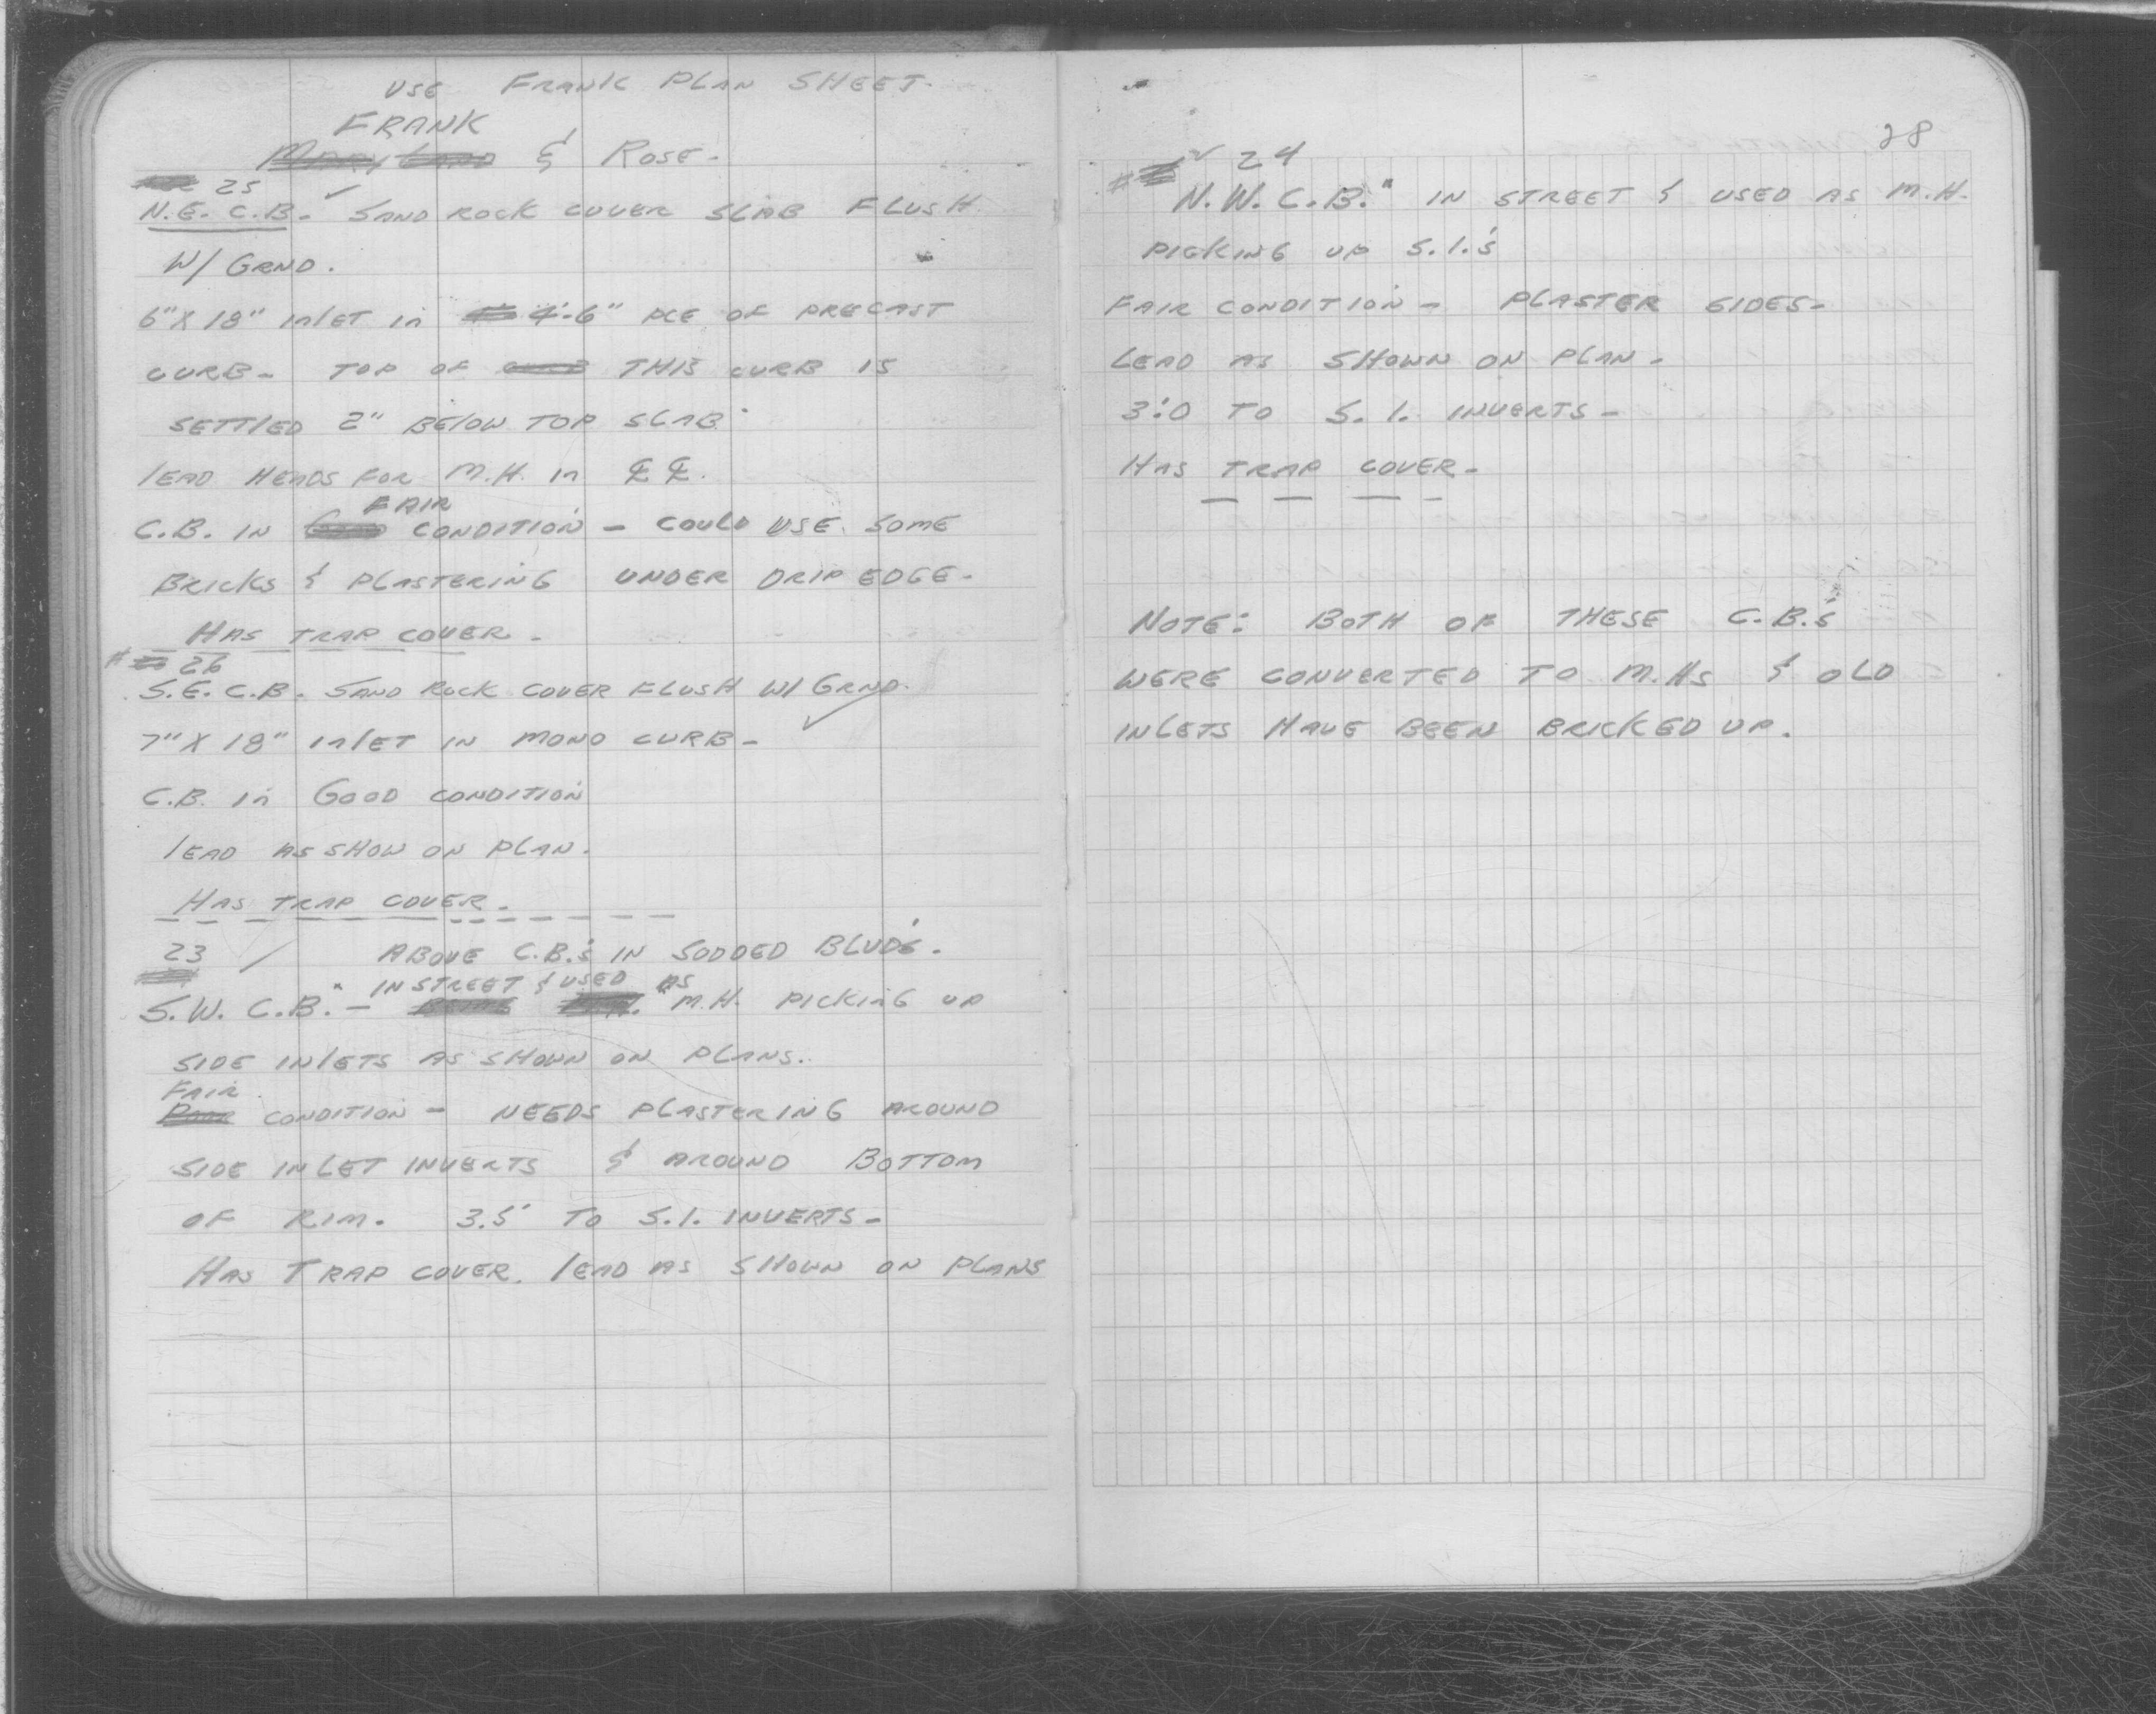 USE FRANK PLAN SHEET.
FRANK
MARYLAND & ROSE-
25
N.E. C.B. - SAND ROCK COVER SLAB FLUSH
W/ GRND.
6" X 18" INLET IN 4'-6" PCE OF PRECAST
CURB- TOP OF CURB THIS CURB IS
SETTLED 2" BELOW TOP SLAB.
LEAD HEADS FOR M.H. IN ℄ ℄.
FAIR
C.B. IN GOOD CONDITION - COULD USE SOME
BRICKS & PLASTERING UNDER DRIP EDGE-
HAS TRAP COVER-
# 26
S.E. C.B. SAND ROCK COVER FLUSH W/ GRND.
7" X 18" INLET IN MONO CURB-
C.B. IN GOOD CONDITION
LEAD AS SHOW ON PLAN.
HAS TRAP COVER-
23 ABOVE C.B.'S IN SODDED BLVD'S.
IN STREET & USED AS
S.W. "C.B." - M.H. PICKING UP
SIDE INLETS AS SHOWN ON PLANS.
FAIR
POOR CONDITION - NEEDS PLASTERING AROUND
SIDE INLET INVERTS & AROUND BOTTOM
OF RIM. 3.5' TO S.I. INVERTS-
HAS TRAP COVER. LEAD AS SHOWN ON PLANS
28
# 24
N.W. C.B." IN STREET & USED AS M.H.
PICKING UP S.I.'S
FAIR CONDITION - PLASTER SIDES-
LEAD AS SHOWN ON PLAN-
3.0 TO S.I. INVERTS-
HAS TRAP COVER-
NOTE: BOTH OF THESE C.B.'S
WERE CONVERTED TO M.HS & OLD
INLETS HAVE BEEN BRICKED UP.